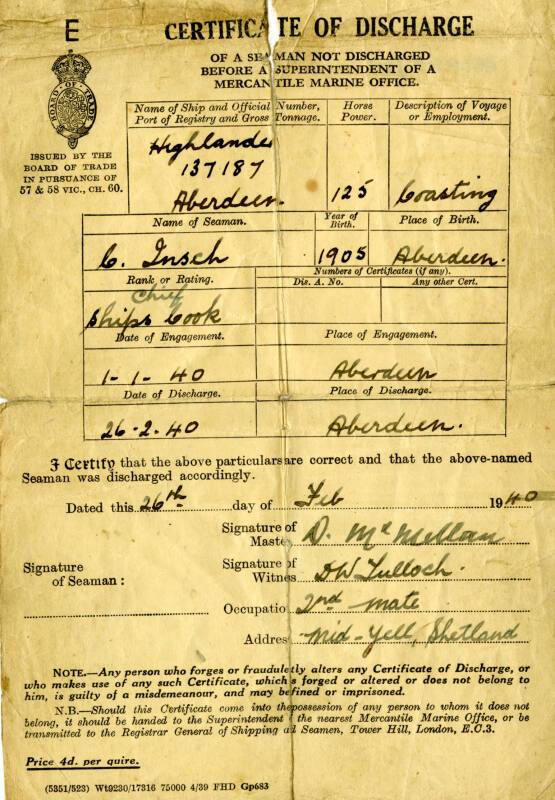 E
CERTIFICATE OF DISCHARGE
OF A SEAMAN NOT DISCHARGED
BEFORE A SUPERINTENDENT OF A
MERCANTILE MARINE OFFICE.
BOARD OF TRADE
ISSUED BY THE
BOARD OF TRADE
IN PURSUANCE OF
57 & 58 VIC., CH. 60.
Name of Ship and Official Number, Port of Registry and Gross Tonnage.
Horse Power.
Description of Voyage or Employment.
Highlander
137187
Aberdeen.
125
Coasting
Name of Seaman.
Year of Birth.
Place of Birth.
C. Insch
1905
Aberdeen.
Rank or Rating.
Numbers of Certificates (if any).
Dis. A. No.
Any other Cert.
Chief
Ships Cook
Date of Engagement.
Place of Engagement.
1-1-40
Aberdeen
Date of Discharge.
Place of Discharge.
26-2-40
Aberdeen.
I Certify that the above particulars are correct and that the above-named
Seaman was discharged accordingly.
Dated this 26th day of Feb 1940
Signature of Master D. McMillan
Signature of Seaman:
Signature of Witness DW Tulloch.
Occupatio 2nd mate
Addres Mid-Yell, Shetland
NOTE.—Any person who forges or fraudulently alters any Certificate of Discharge, or
who makes use of any such Certificate, which is forged or altered or does not belong to
him, is guilty of a misdemeanour, and may be fined or imprisoned.
N.B.—Should this Certificate come into the possession of any person to whom it does not
belong, it should be handed to the Superintendent of the nearest Mercantile Marine Office, or be
transmitted to the Registrar General of Shipping and Seamen, Tower Hill, London, E.C.3.
Price 4d. per quire.
(5351/523) Wt9230/17316 75000 4/39 FHD Gp683